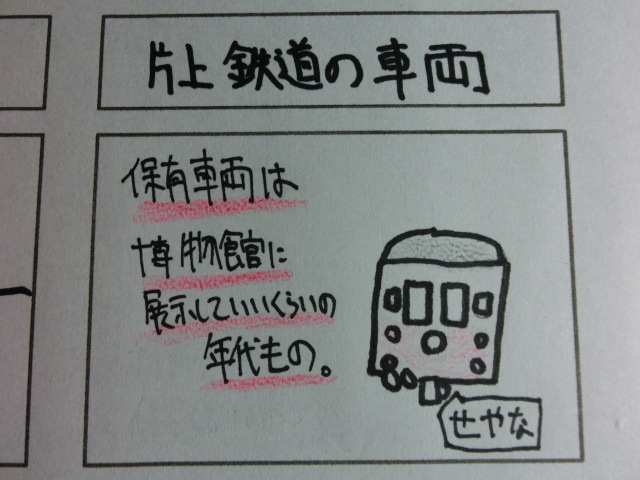 片上鉄道の車両
保有車両は
博物館に
展示していいくらいの
年代もの。
せやな